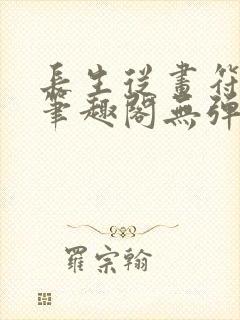 長生從畫符
筆趣閣無彈
羅宗翰